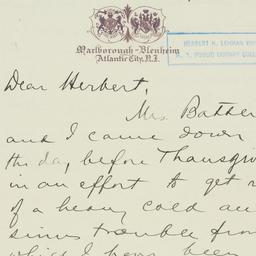 Marlborough-Blenheim
Atlantic City, N.J.
HERBERT H. LEHMAN
N. Y. PUBLIC LIBRARY
Dear Herbert,
Mrs.
and I came down
the day before Thanksgiv
in an effort to get r
of a heavy cold an
sinus trouble from
which I have been